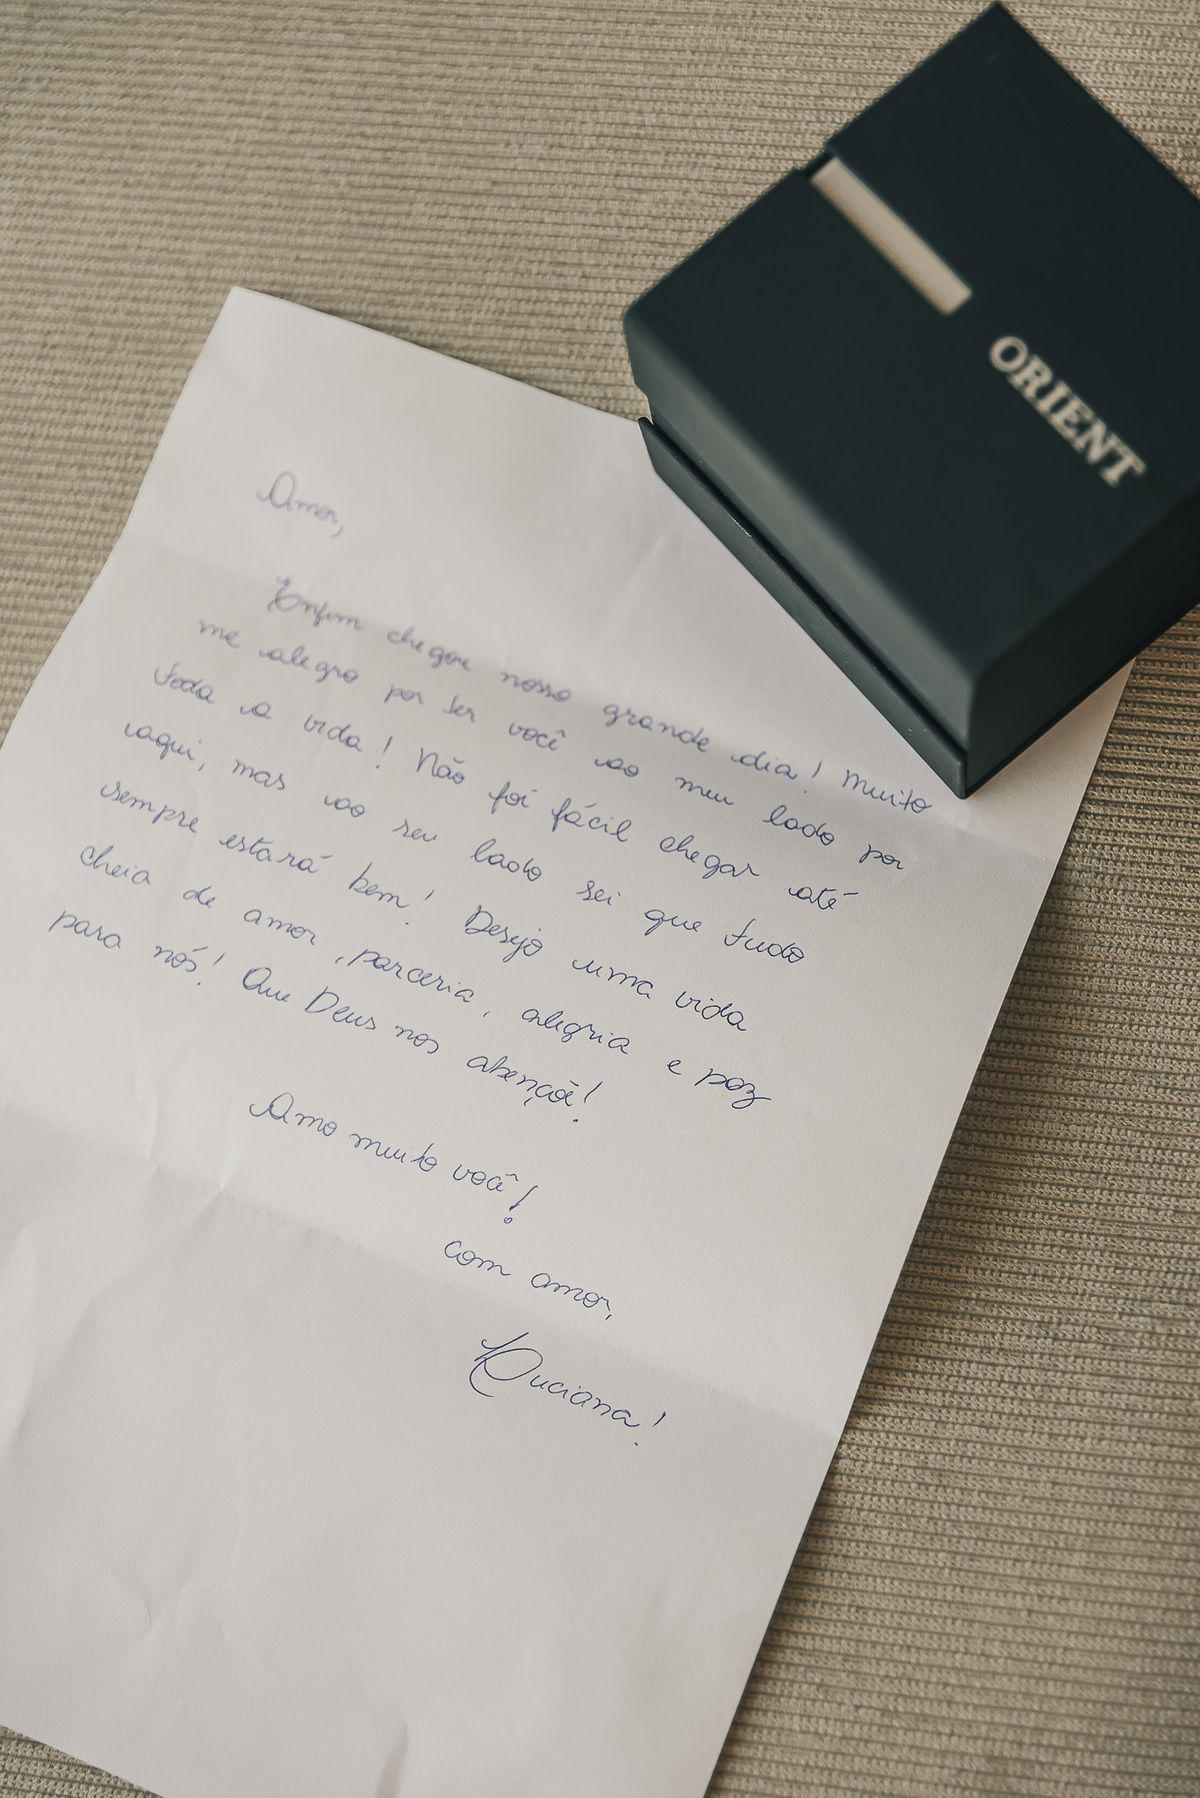 ORIENT
Amor,
Enfim chegou nosso grande dia! Muito
me alegro por ter você ao meu lado por
toda a vida! Não foi fácil chegar até
aqui, mas ao seu lado sei que tudo
sempre estará bem! Desejo uma vida
cheia de amor, parceria, alegria e paz
para nós! Que Deus nos abençoe!
Amo muito você!
com amor,
Luciana!